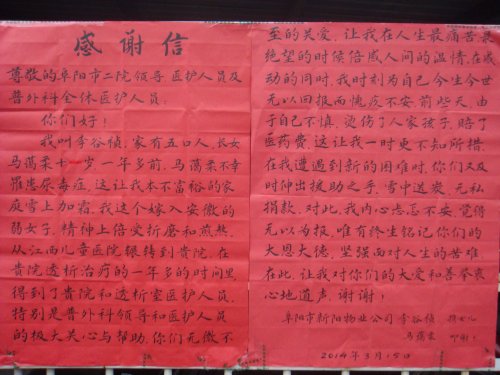 感谢信
尊敬的阜阳市二院领导医护人员及
普外科全体医护人员:
你们好!
我叫李谷桢,家有五口人,长女
马蔼柔十岁一年多前,马蔼柔不幸
罹患尿毒症,这让我本不富裕的家
庭雪上加霜,我这个嫁入安徽的
弱女子,精神上倍受折磨和煎熬,
从江西儿童医院辗转到贵院,在
贵院透析治疗的一年多的时间里,
得到了贵院和透析室医护人员,
特别是普外科领导和医护人员
的极大关心与帮助,你们无微不
至的关爱,让我在人生最痛苦最
绝望的时候倍感人间的温情,在感
动的同时,我时刻为自己今生今世
无以回报而愧疚不安,前些天,由
于自己不慎,烫伤了人家孩子,赔了
医药费,这让我一时更不知所措,
在我遭遇到新的困难时,你们又及
时伸出援助之手,雪中送炭,无私
捐款,对此,我内心忐忑不安,觉得
无以为报,唯有终生铭记你们的
大恩大德,坚强面对人生的苦难,
在此,让我对你们的大爱和善举衷
心地道声:谢谢!
阜阳市新阳物业公司李谷桢 携女儿
马蔼柔 叩谢!
2014年3月15日